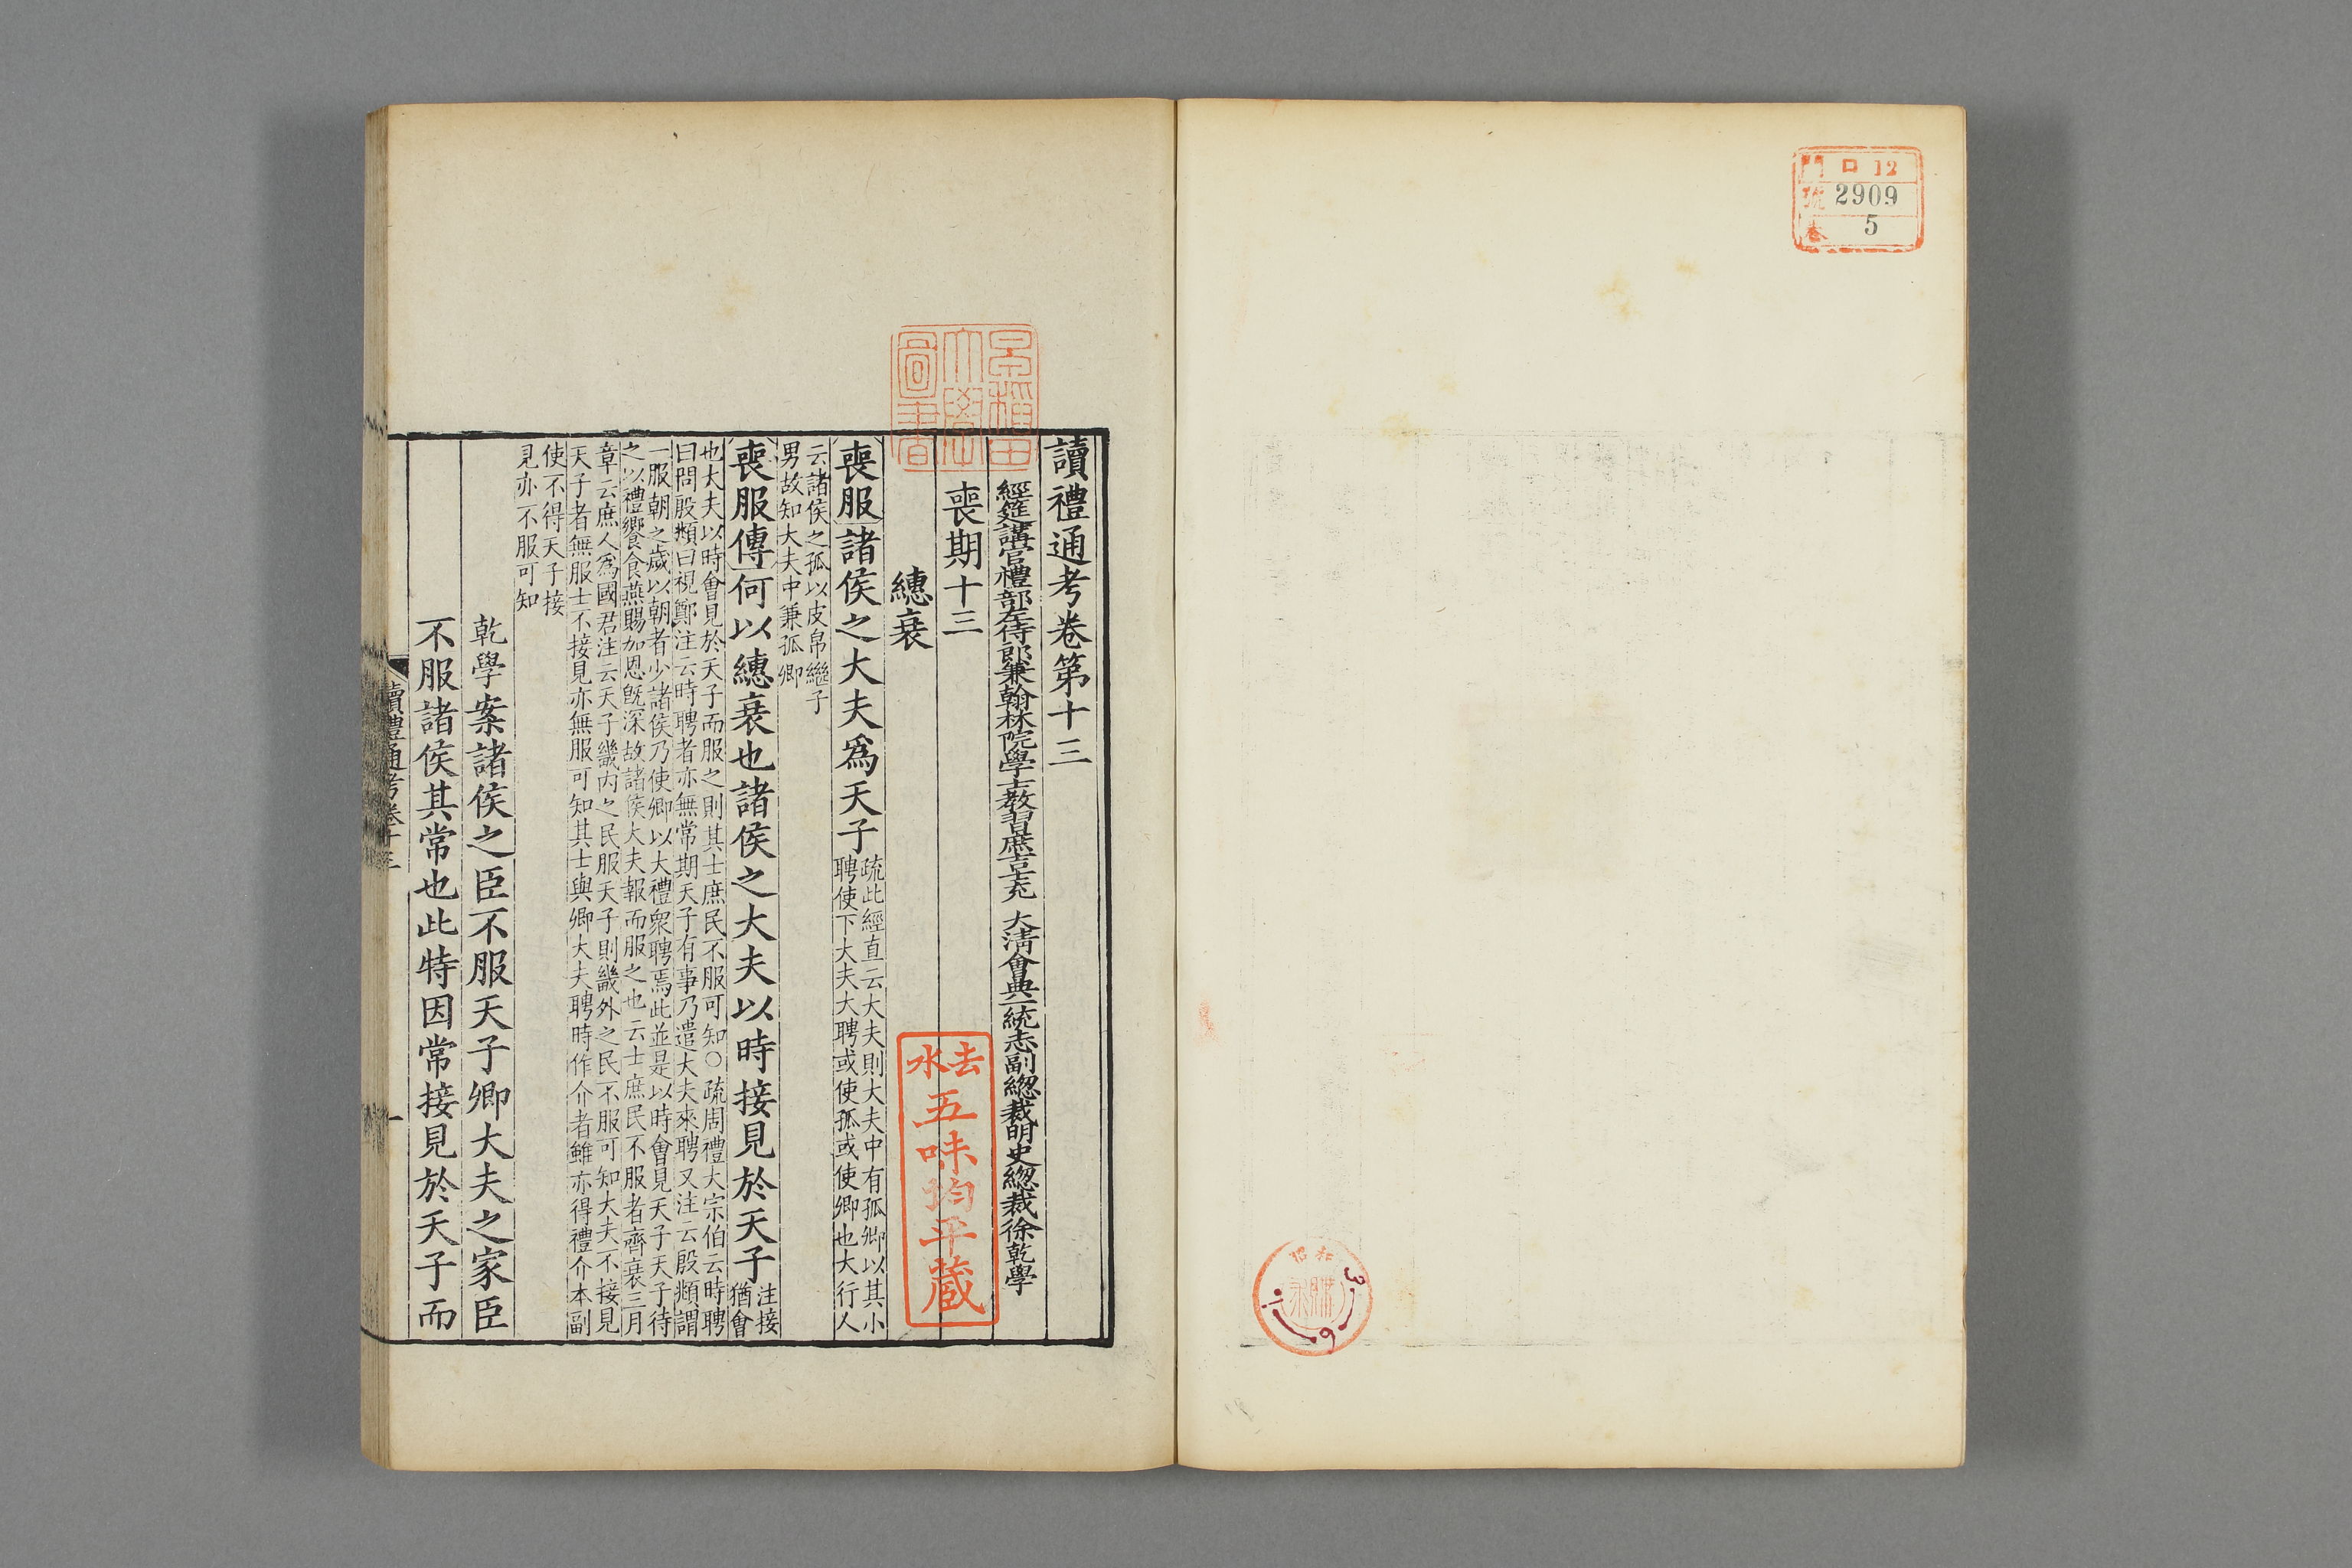 門 ロ 12
號 2909
卷 5
早稻田
大學
圖書
讀禮通考卷第十三
經筵講官禮部左侍郎兼翰林院學士教習庶吉士充 大清會典一統志副緫裁明史緫裁徐乾學
喪期十三
繐衰
喪服諸侯之大夫爲天子
疏此經直云大夫則大夫中有孤卿以其小
聘使下大夫大聘或使孤或使卿也大行人
云諸侯之孤以皮帛繼子
男故知大夫中兼孤卿
喪服傳何以繐衰也諸侯之大夫以時接見於天子
注接
猶會
也大夫以時會見於天子而服之則其士庶民不服可知○疏周禮大宗伯云時聘
曰問殷頫曰視鄭注云時聘者亦無常期天子有事乃遣大夫來聘又注云殷頫謂
一服朝之歲以朝者少諸侯乃使卿以大禮衆聘焉此並是以時會見天子天子待
之以禮饗食燕賜加恩旣深故諸侯大夫報而服之也云士庶民不服者齊衰三月
章云庶人爲國君注云天子畿內之民服天子則畿外之民不服可知大夫不接見
天子者無服士不接見亦無服可知其士與卿大夫聘時作介者雖亦得禮介本副
使不得天子接
見亦不服可知
乾學案諸侯之臣不服天子卿大夫之家臣
不服諸侯其常也此特因常接見於天子而
讀禮通考卷十三
一
去水
五味均平蔵
昭和